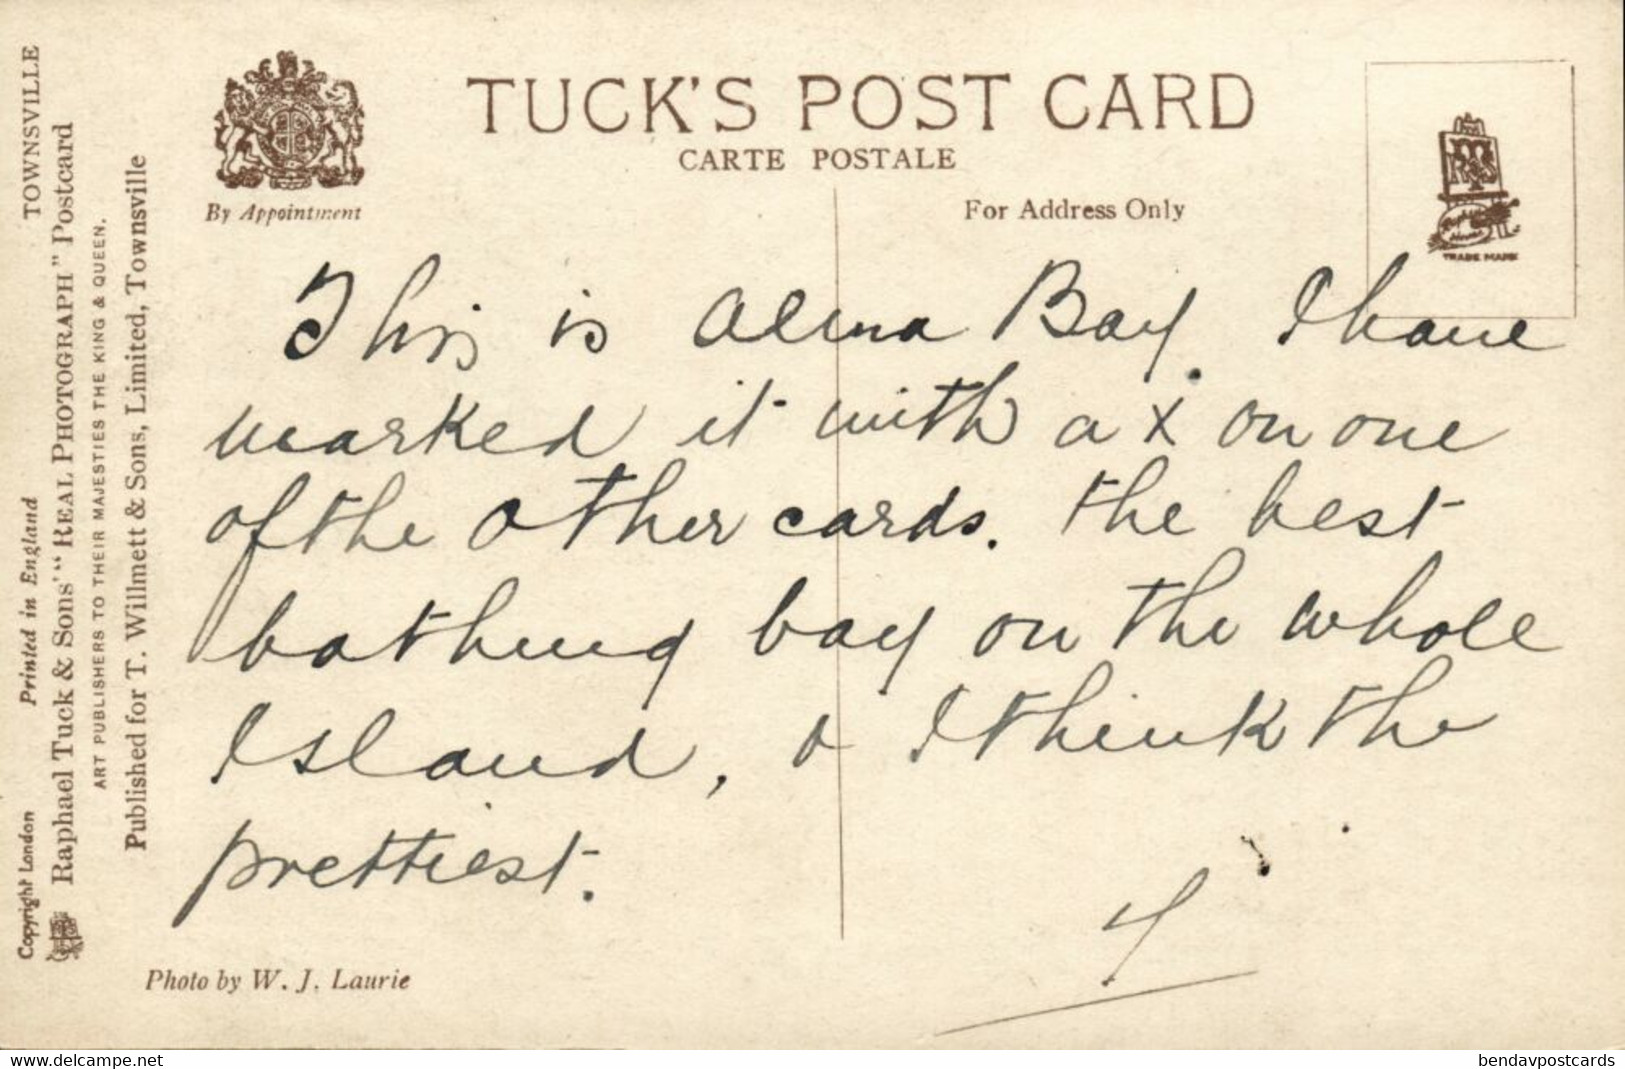 TUCK'S POST CARD
CARTE POSTALE
By Appointment
For Address Only
TRADE MARK
This is Alma Bay. I have
marked it with a x on one
of the other cards. the best
bathing bay on the whole
Island, & I think the
prettiest.
Photo by W. J. Laurie
Copyright London
Printed in England
TOWNSVILLE
Raphael Tuck & Sons' "REAL PHOTOGRAPH" Postcard
ART PUBLISHERS TO THEIR MAJESTIES THE KING & QUEEN.
Published for T. Willmett & Sons, Limited, Townsville
www.delcampe.net
bendavpostcards